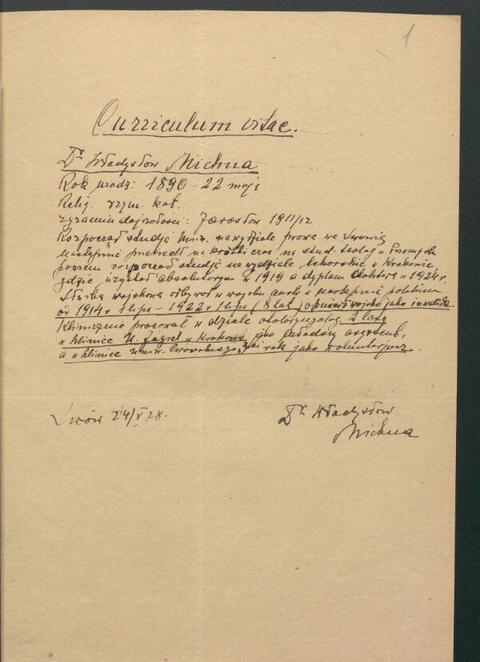 1
Curriculum vitae.
Dr Władysław Michna
Rok urodz: 1890 - 22 maja
Relig. rzym. kat.
egzamin dojrzałości: Jarosław 1911/12
Rozpoczął studja Uniw. na wydziale prawa we Lwowie
następnie przeszedł na krótki czas na stud. teolog w Przemyślu
poczem rozpoczął studja na wydziale lekarskim w Krakowie
gdzie uzyskał absolutorjum w 1919 a dyplom doktora w 1924 r.
Służbę wojskową odbywał w wojsku austr. a następnie polskim
od 1914 1 lipc - 1922 1 lipc (8 lat) opuścił wojsko jako inwalida.
Klinicznie pracował w dziale otolaryngolog. 2 lata
w klinice U. Jagiel w Krakowie jako asystent,
a w klinice uniw. Lwowskiego rok jako wolontarjusz.
Lwów 24/V 28.
Dr Władysław
Michna